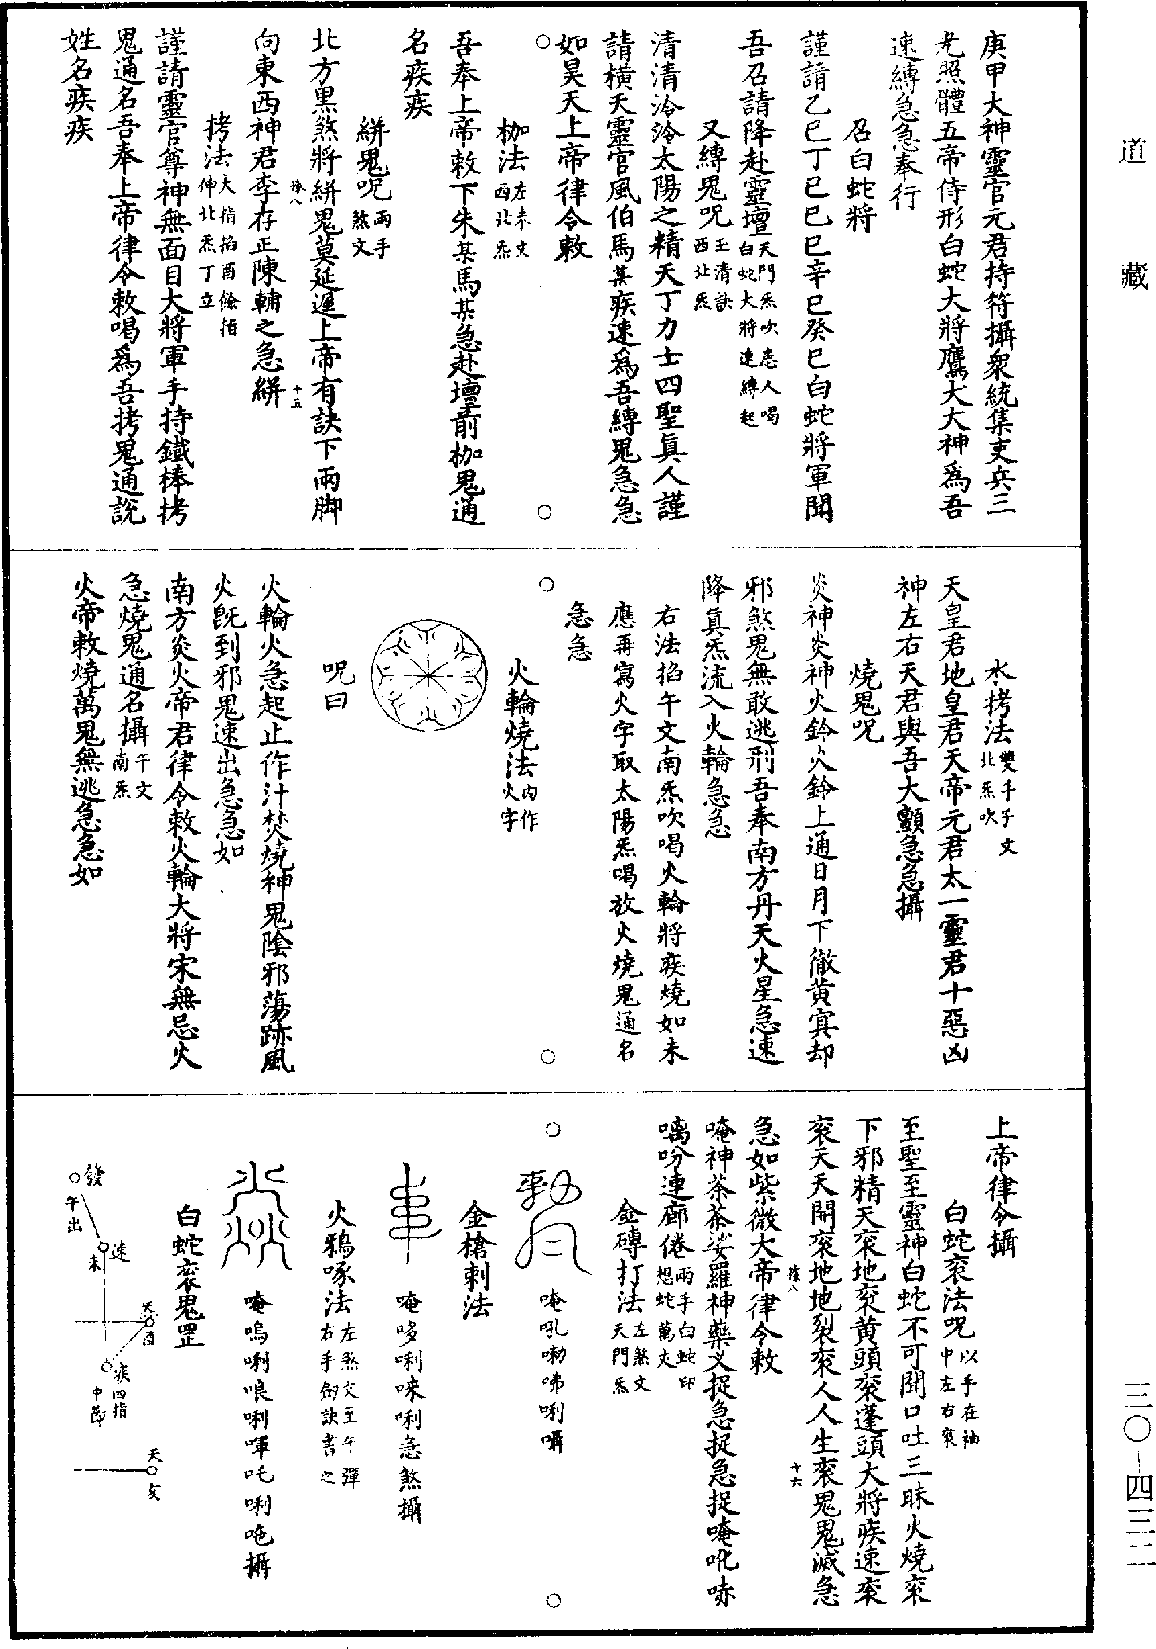 道藏
三〇—四三二
庚甲大神靈官元君持符攝衆統集吏兵三
光照體五帝侍形白蛇大將鷹犬大神爲吾
速縛急急奉行
召白蛇將
謹請乙巳丁巳己巳辛巳癸巳白蛇將軍聞
吾召請降赴靈壇天門炁吹患人喝白蛇大將速縛起
又縛鬼呪玉清訣西北炁
清清泠泠太陽之精天丁力士四聖眞人謹
請橫天靈官風伯馬某疾速爲吾縛鬼急急
如昊天上帝律令敕
枷法左未文西北炁
吾奉上帝敕下朱某馬某急赴壇前枷鬼通
名疾疾
絣鬼呪兩手煞文
北方黑煞將絣鬼莫延遲上帝有訣下兩脚
向東西神君李存正陳輔之急絣
十五
拷法大指掐酉餘指伸北炁丁立
謹請靈官尊神無面目大將軍手持鐵棒拷
鬼通名吾奉上帝律令敕喝爲吾拷鬼通說
姓名疾疾
水拷法雙手子文北炁吹
天皇君地皇君天帝元君太一靈君十惡凶
神左右天君與吾大顯急急攝
燒鬼呪
炎神炎神火鈴火鈴上通日月下徹黃冥却
邪煞鬼無敢逃刑吾奉南方丹天火星急速
降真炁流入火輪急急
右法掐午文南炁吹喝火輪將疾燒如未
應再寫火字取太陽炁喝放火燒鬼通名
急急
火輪燒法内作火字
呪曰
火輪火急起止作汁焚燒神鬼陰邪蕩跡風
火旣到邪鬼速出急急如
南方炎火帝君律令敕火輪大將宋無忌火
急燒鬼通名攝午文南炁
火帝敕燒萬鬼無逃急急如
上帝律令攝
白蛇衮法呪以手在袖中左右衮
至聖至靈神白蛇不可開口吐三昧火燒衮
下邪精天衮地衮黃頭衮蓬頭大將疾速衮
衮天天開衮地地裂衮人人生衮鬼鬼滅急
十六
急如紫微大帝律令敕
唵神荼荼娑羅神藥义捉急捉急捉唵吪哧
㗫吩連廊倦兩手白蛇印想蛇萬丈
金磚打法左煞文天門炁
唵吼嘞㖇唎囁
金槍刺法
唵哆唎唻唎急煞攝
火鴉啄法左煞文至午彈右手劍訣書之
唵嗚唎哴唎喗吒唎唵攝
白蛇衮鬼罡
發
午出
速
未
天
酉
疾四指
中節
天
亥